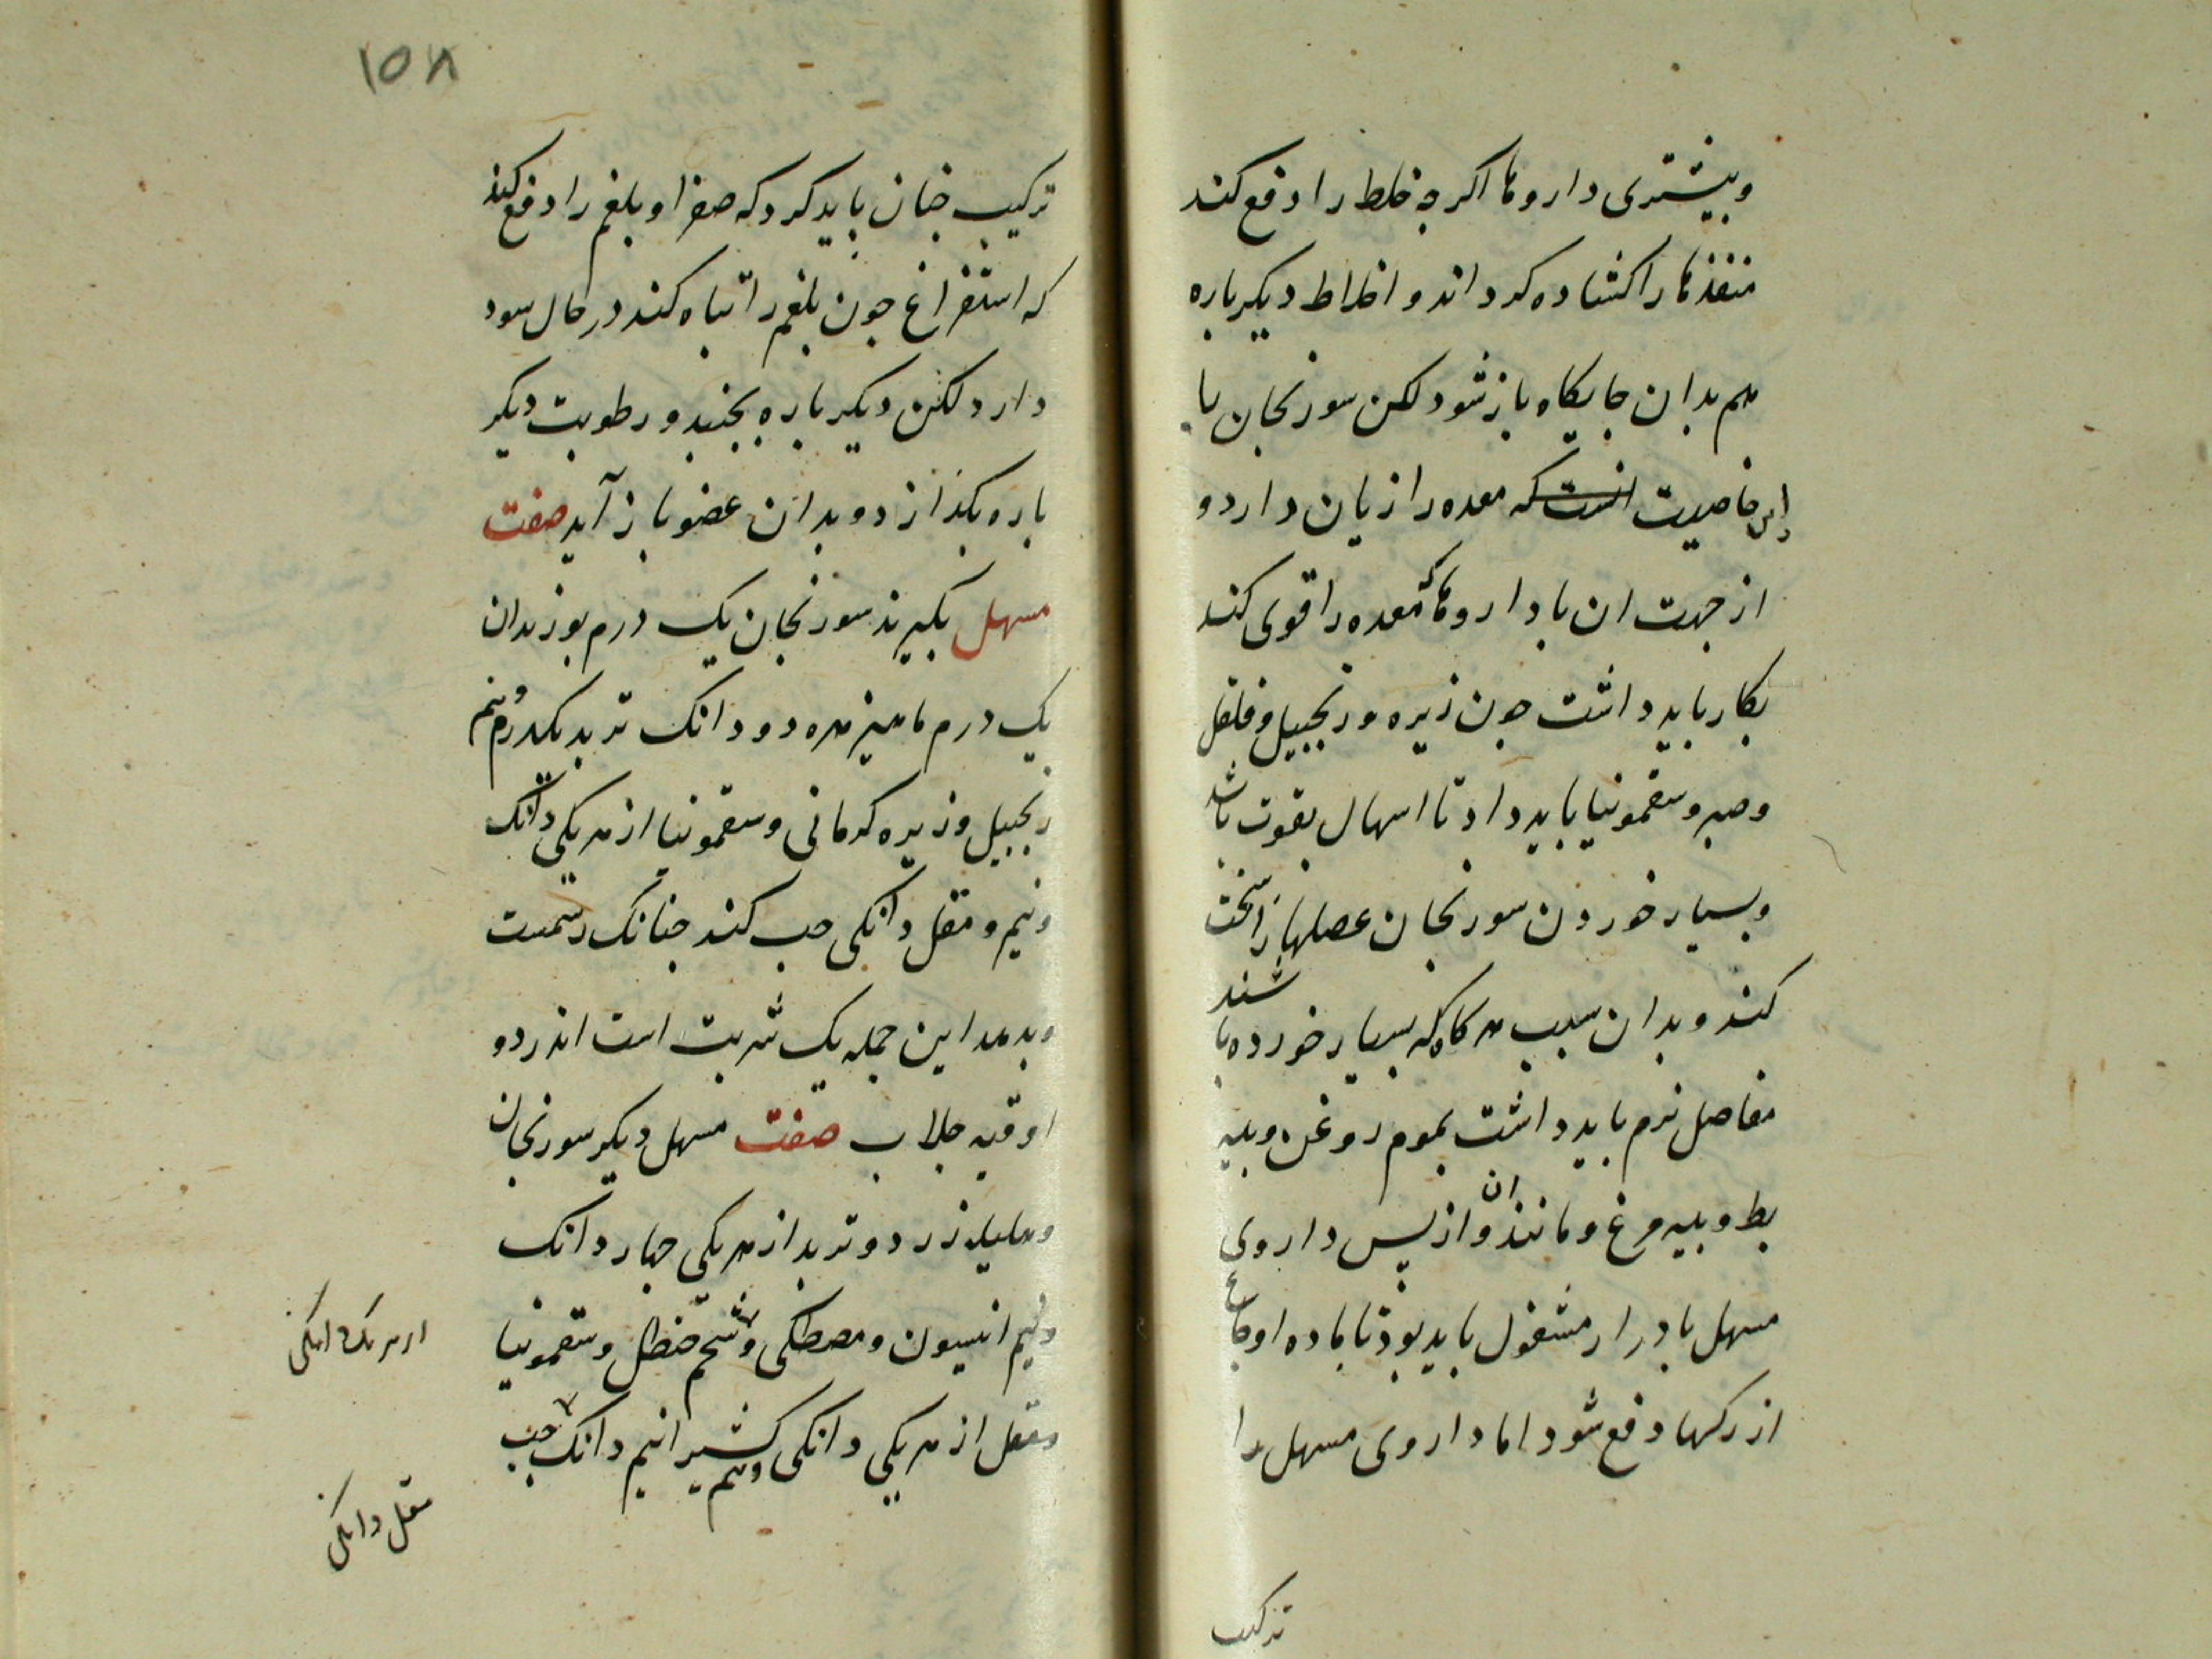 وبیشتری داروها اکرجه خلط را دفع کند
منفذها را کشاده کرداند و اخلاط دیکرباره
هم بدان جایکاه بازشود لکن سورنجان با
این خاصیت انست که معده را زیان دارد و
از جهت ان با داروها که معده را قوی کند
بکار باید داشت جون زیره و زنجبیل و فلفل
وصبر و سقمونیا باید داد تا اسهال بقوت باشد
وبسیار خوردن سورنجان عصلهارا سخت
کند و بدان سبب هرکاه که بسیار خورده باشند
مفاصل نرم باید داشت بموم روغن و بیه
بط و بیه مرغ و مانند ان و از پس داروی
مسهل بادرار مشغول باید بود تا ماده اوجاع
از رکها دفع شود اما داروی مسهل را
ترکیب
۱۵۸
ترکیب جنان باید کرد که صفرا و بلغم را دفع کند
که استفراغ جون بلغم را تباه کند درحال سود
دارد لکن دیکرباره بجنبد و رطوبت دیکر
باره بکذازد و بدان عضو باز آید صفت
مسهل بکیرند سورنجان یک درم بوزیدان
یک درم ماهیزهره دو دانک تربد یکدرم و نیم
زنجبیل و زیره کرمانی و سقمونیا از هریکی دانک
ونیم و مقل دانکی حب کند جنانک رسمست
وبدهد این جمله یک شربت است اندر دو
اوقیه جلاب صفت مسهل دیکر سورنجان
وهلیله زرد و تربد از هریکی جهار دانک
ونیم انیسون و مصطکی و شحم حنظل و سقمونیا
ومقل از هریکی دانکی ونیم کثیرا نیم دانک حب
از هریک دانکی
مقل دانکی